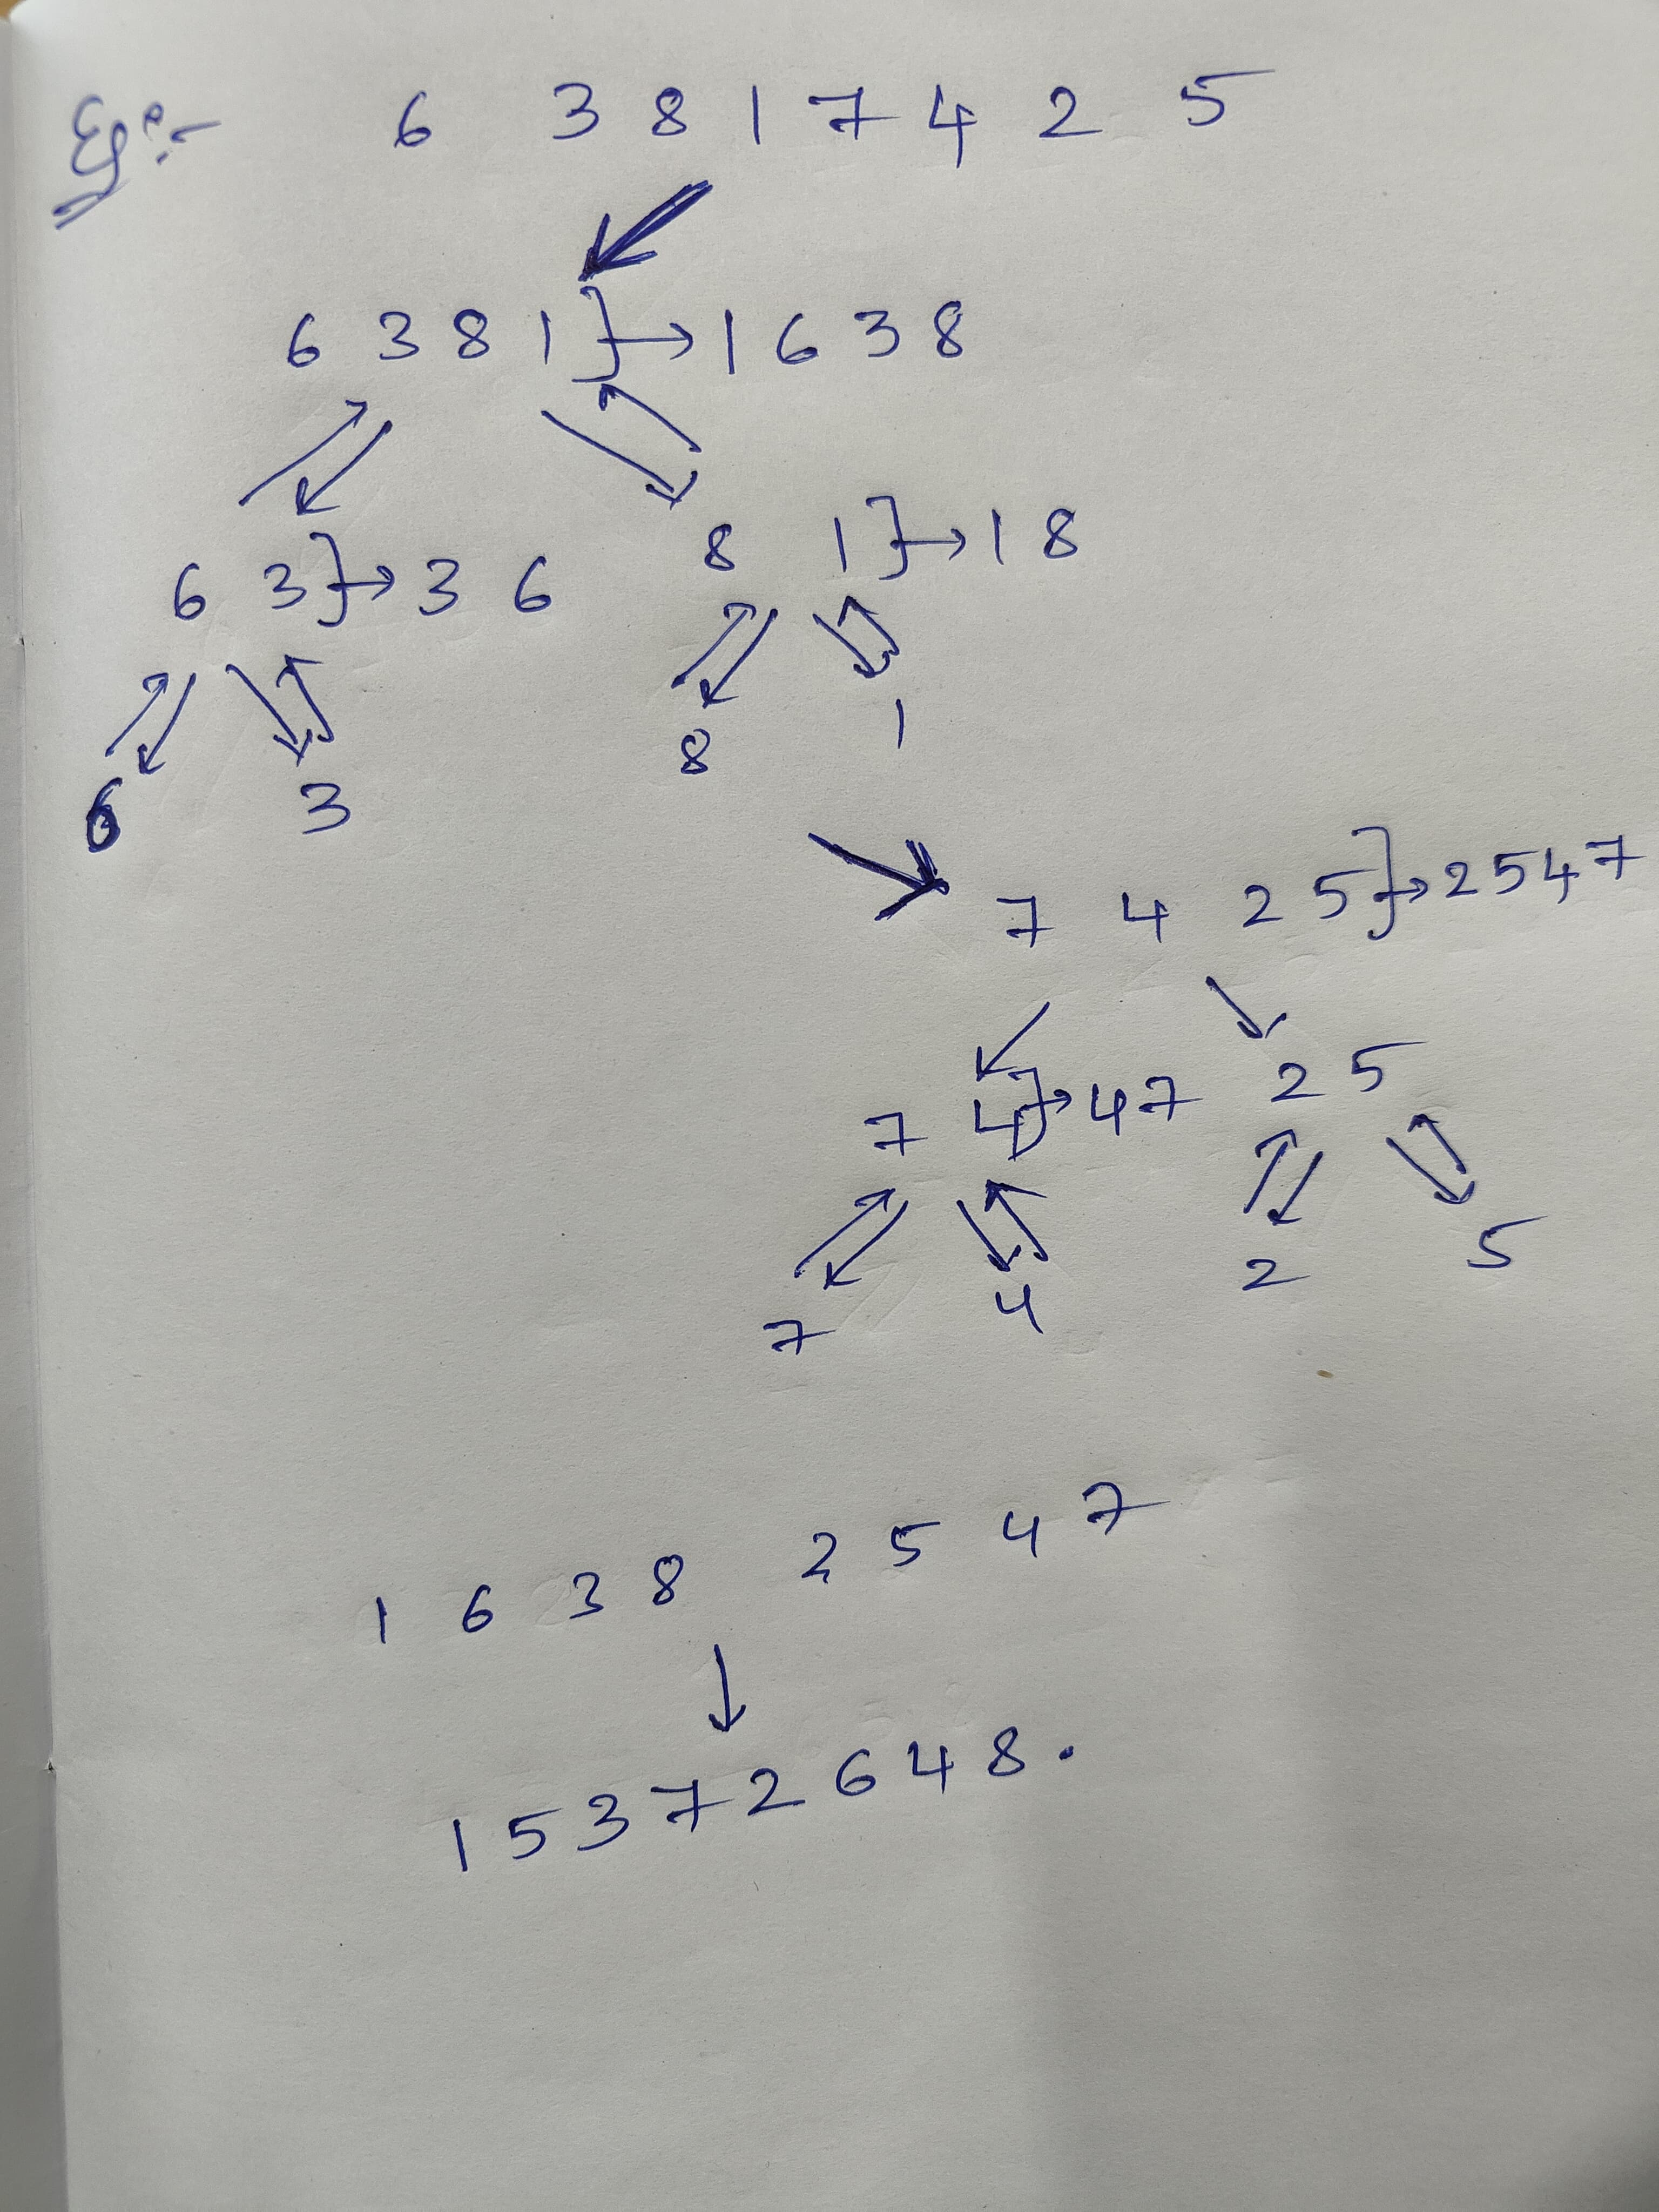 Eg:-
6 3 8 1 7 4 2 5
6 3 8 1 } → 1 6 3 8
6 3 } → 3 6
8 1 } → 1 8
6 3
8 1
7 4 2 5 } → 2 5 4 7
7 4 } → 4 7
2 5
7 4
2 5
1 6 3 8 2 5 4 7
↓
1 5 3 7 2 6 4 8 .